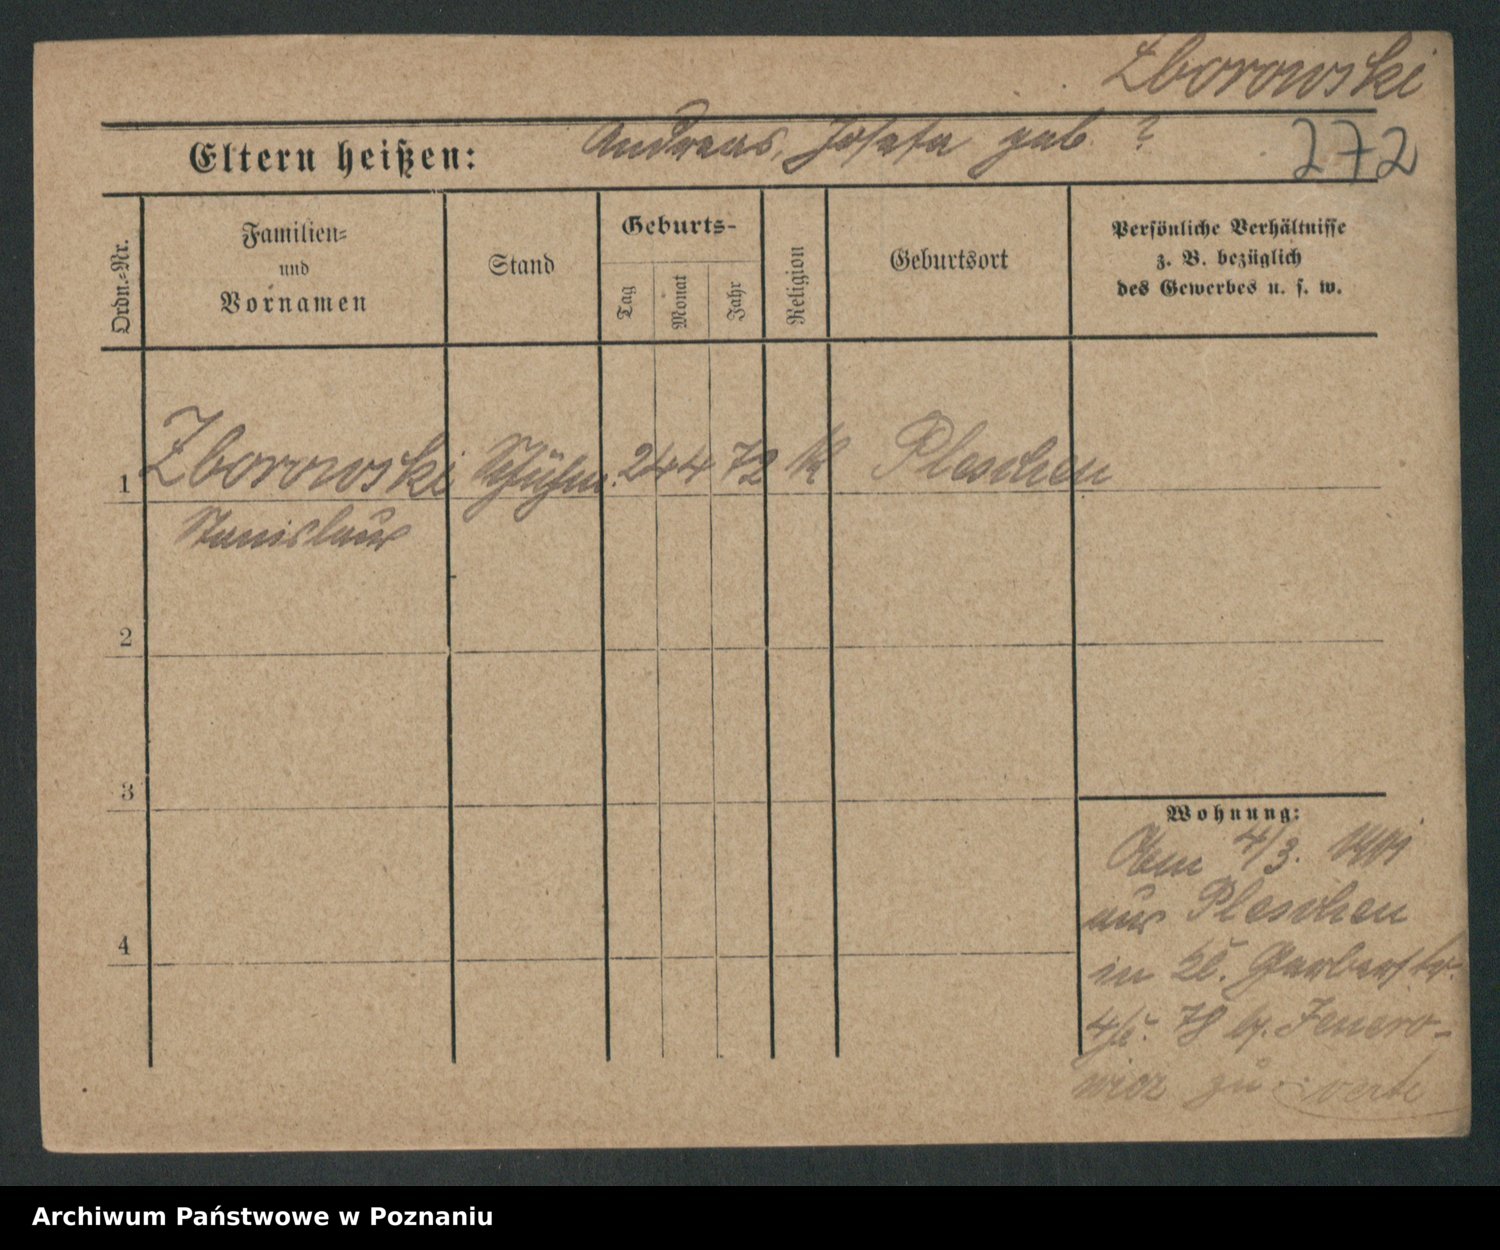 Zborowski
Eltern heißen: Andreas, Josefa geb ?
272
Ordn.=Nr.
Familien=
und
Vornamen
Stand
Geburts-
Tag
Monat
Jahr
Religion
Geburtsort
Persönliche Verhältnisse
z. B. bezüglich
des Gewerbes u. s. w.
1 Zborowski 24 4 72 K Pleschen
Stanislaus
2
3
Wohnung:
4/3.
aus Pleschen
4
in Gerberstr.
zu verte
Archiwum Państwowe w Poznaniu